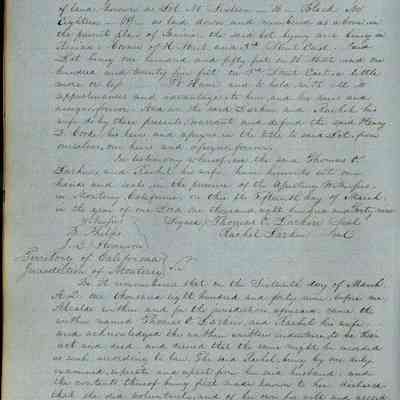 of land known as Lot No Sixteen — 16 — Block No
Eighteen — 18 — as laid down and numbered as above in
the patent plan of Benicia the said lot being and lying in
Benicia Corner of H Street and 3rd Street East. Said
Lot being one hundred and fifty feet on H Street and one
hundred and twenty five feet on 3rd Street East a little
more or less. To Have and to hold with all its
appurtenances and advantages to him and his heirs and
assigns forever. And we the said Larkin and Rachel his
wife do by these presents warrant and defend the said Henry
D. Cooke his heirs and assigns in the title to said Lot, from
ourselves, our heirs and assigns forever.
In testimony whereof, we, the said Thomas O.
Larkin and Rachel his wife, have hereunto set our
hands and seals in the presence of the
in Monterey California, on this the fifteenth day of March
in the year of our Lord one thousand eight hundred and forty nine
Witnesses Signed Thomas O. Larkin Seal
Phelps Rachel Larkin Seal
J. D. Stevenson
Territory of California
Jurisdiction of Monterey
Be it remembered that on the Sixteenth day of March
A.D. one thousand eight hundred and forty nine, before me
Alcalde within and for the jurisdiction aforesaid came the
within named Thomas O. Larkin and Rachel his wife
and acknowledged the within written indenture to be their
act and deed and desired that the same might be recorded
as such according to law. The said Rachel being by me duly
examined, separate and apart from her said husband, and
the contents thereof being first made known to her declared
that she did voluntarily and of her own free will and accord